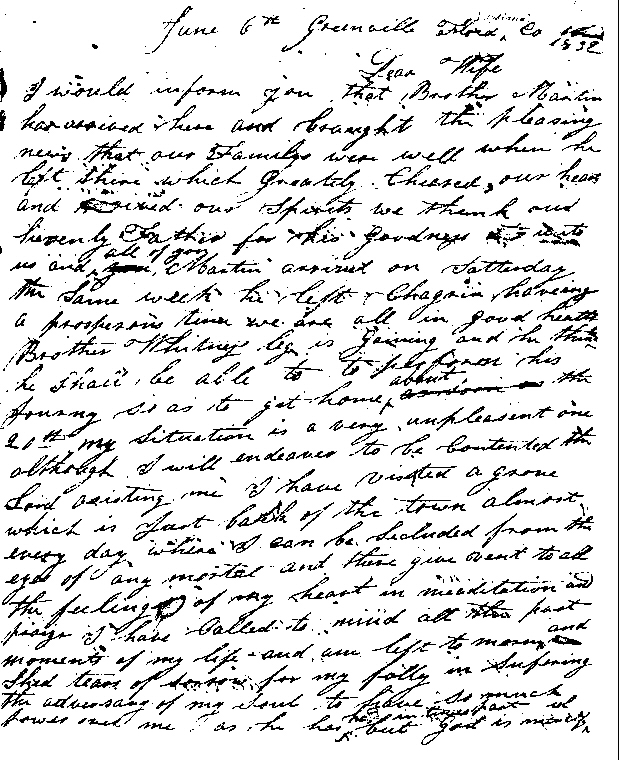 June 6th Greenville Floid, Co Indiana 1832
Dear Wife
I would inform you that Brother Martin
has arrived here and braught the pleasing
news that our Familys were well when he
left there which Greately Cheared, our hearts
and revived our Spirits we thank our
hevenly Father for his Goodness unto
us and all of you, Martin arrived on Satterday
the Same week he left Chagrin haveing
a prosperous time we are all in good health
Brother Whitneys leg is Gaining and he thinks
he Shall be able to to perform his
Journy so as to get home about the
20th my Situation is a very unpleasent one
although I will endeaver to be Contented the
Lord asisting me I have visited a grove
which is Just back of the town almost
every day where I can be Secluded from the
eyes of any mortal and there give vent to all
the feelings of my heart in meaditation and
praiyr I have Called to mind all the past
moments of my life and am left to morn and
Shed tears of sorrow for my folly in Sufering
the adversary of my Soul to have so much
power over me as he has had in times past but God is mercif